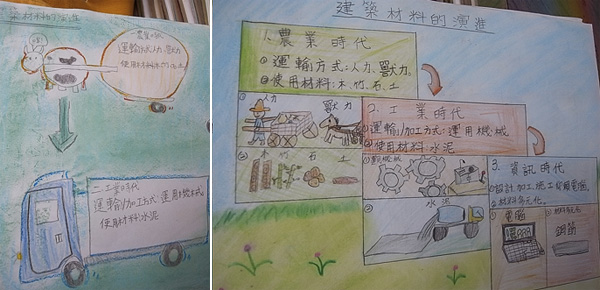 築材料的演進
一.農業時代
運輸方式:人力、獸力
使用材料:木竹石土
二.工業時代
運輸/加工方式:運用機械
使用材料:水泥
建築材料的演進
1.農業時代
①運輸方式:人力、獸力。
②使用材料:木、竹、石、土
①人力
獸力
②木竹石土
2.工業時代
①運輸/加工方式:運用機械
②使用材料:水泥
①動力機械
②水泥
3.資訊時代
②材料多元化。
①電腦
鋼筋